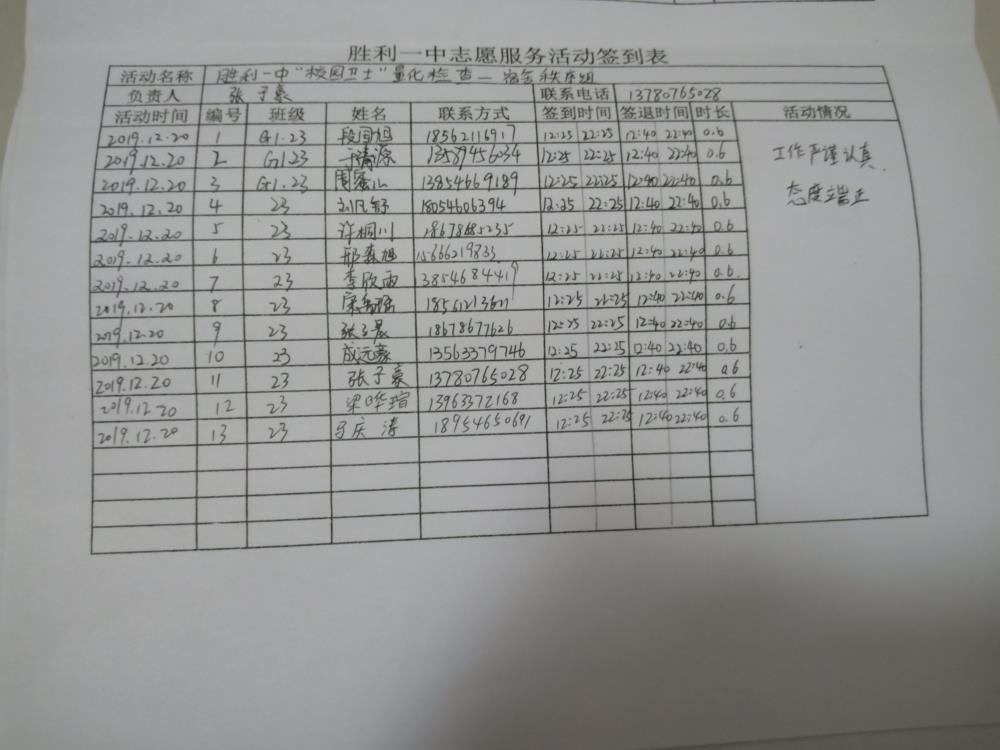 胜利一中志愿服务活动签到表
活动名称 胜利一中"校园卫士"量化检查—宿舍秩序组
负责人 张子豪 联系电话 13780765028
活动时间 编号 班级 姓名 联系方式 签到时间 签退时间 时长 活动情况
2019.12.20 1 G1.23 段闰旭 18562116917 12:25 22:25 12:40 22:40 0.6
2019.12.20 2 G1.23 于清源 13589456034 12:25 22:25 12:40 22:40 0.6 工作严谨认真
2019.12.20 3 G1.23 13854669189 12:25 22:25 12:40 22:40 0.6
2019.12.20 4 23 18054606394 12:25 22:25 12:40 22:40 0.6 态度端正
2019.12.20 5 23 许桐川 18678685235 12:25 22:25 12:40 22:40 0.6
2019.12.20 6 23 邢森旭 15666219833 12:25 22:25 12:40 22:40 0.6
2019.12.20 7 23 李欣雨 13854684419 12:25 22:25 12:40 22:40 0.6
2019.12.20 8 23 12:25 22:25 12:40 22:40 0.6
2019.12.20 9 23 张子晨 18678677626 12:25 22:25 12:40 22:40 0.6
2019.12.20 10 23 成元豪 13563379746 12:25 22:25 12:40 22:40 0.6
2019.12.20 11 23 张子豪 13780765028 12:25 22:25 12:40 22:40 0.6
2019.12.20 12 23 梁晔瑄 13963372168 12:25 22:25 12:40 22:40 0.6
2019.12.20 13 23 马庆涛 18954650691 12:25 22:25 12:40 22:40 0.6